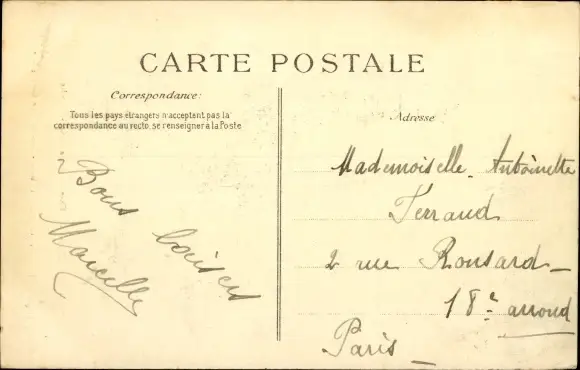 CARTE POSTALE
Correspondance:
Tous les pays étrangers n'acceptent pas la
correspondance au recto, se renseigner à la Poste
Bons baisers
Marcelle
Adresse
Mademoiselle Antoinette
Ferraud
2 rue Ronsard
18e arrond
Paris